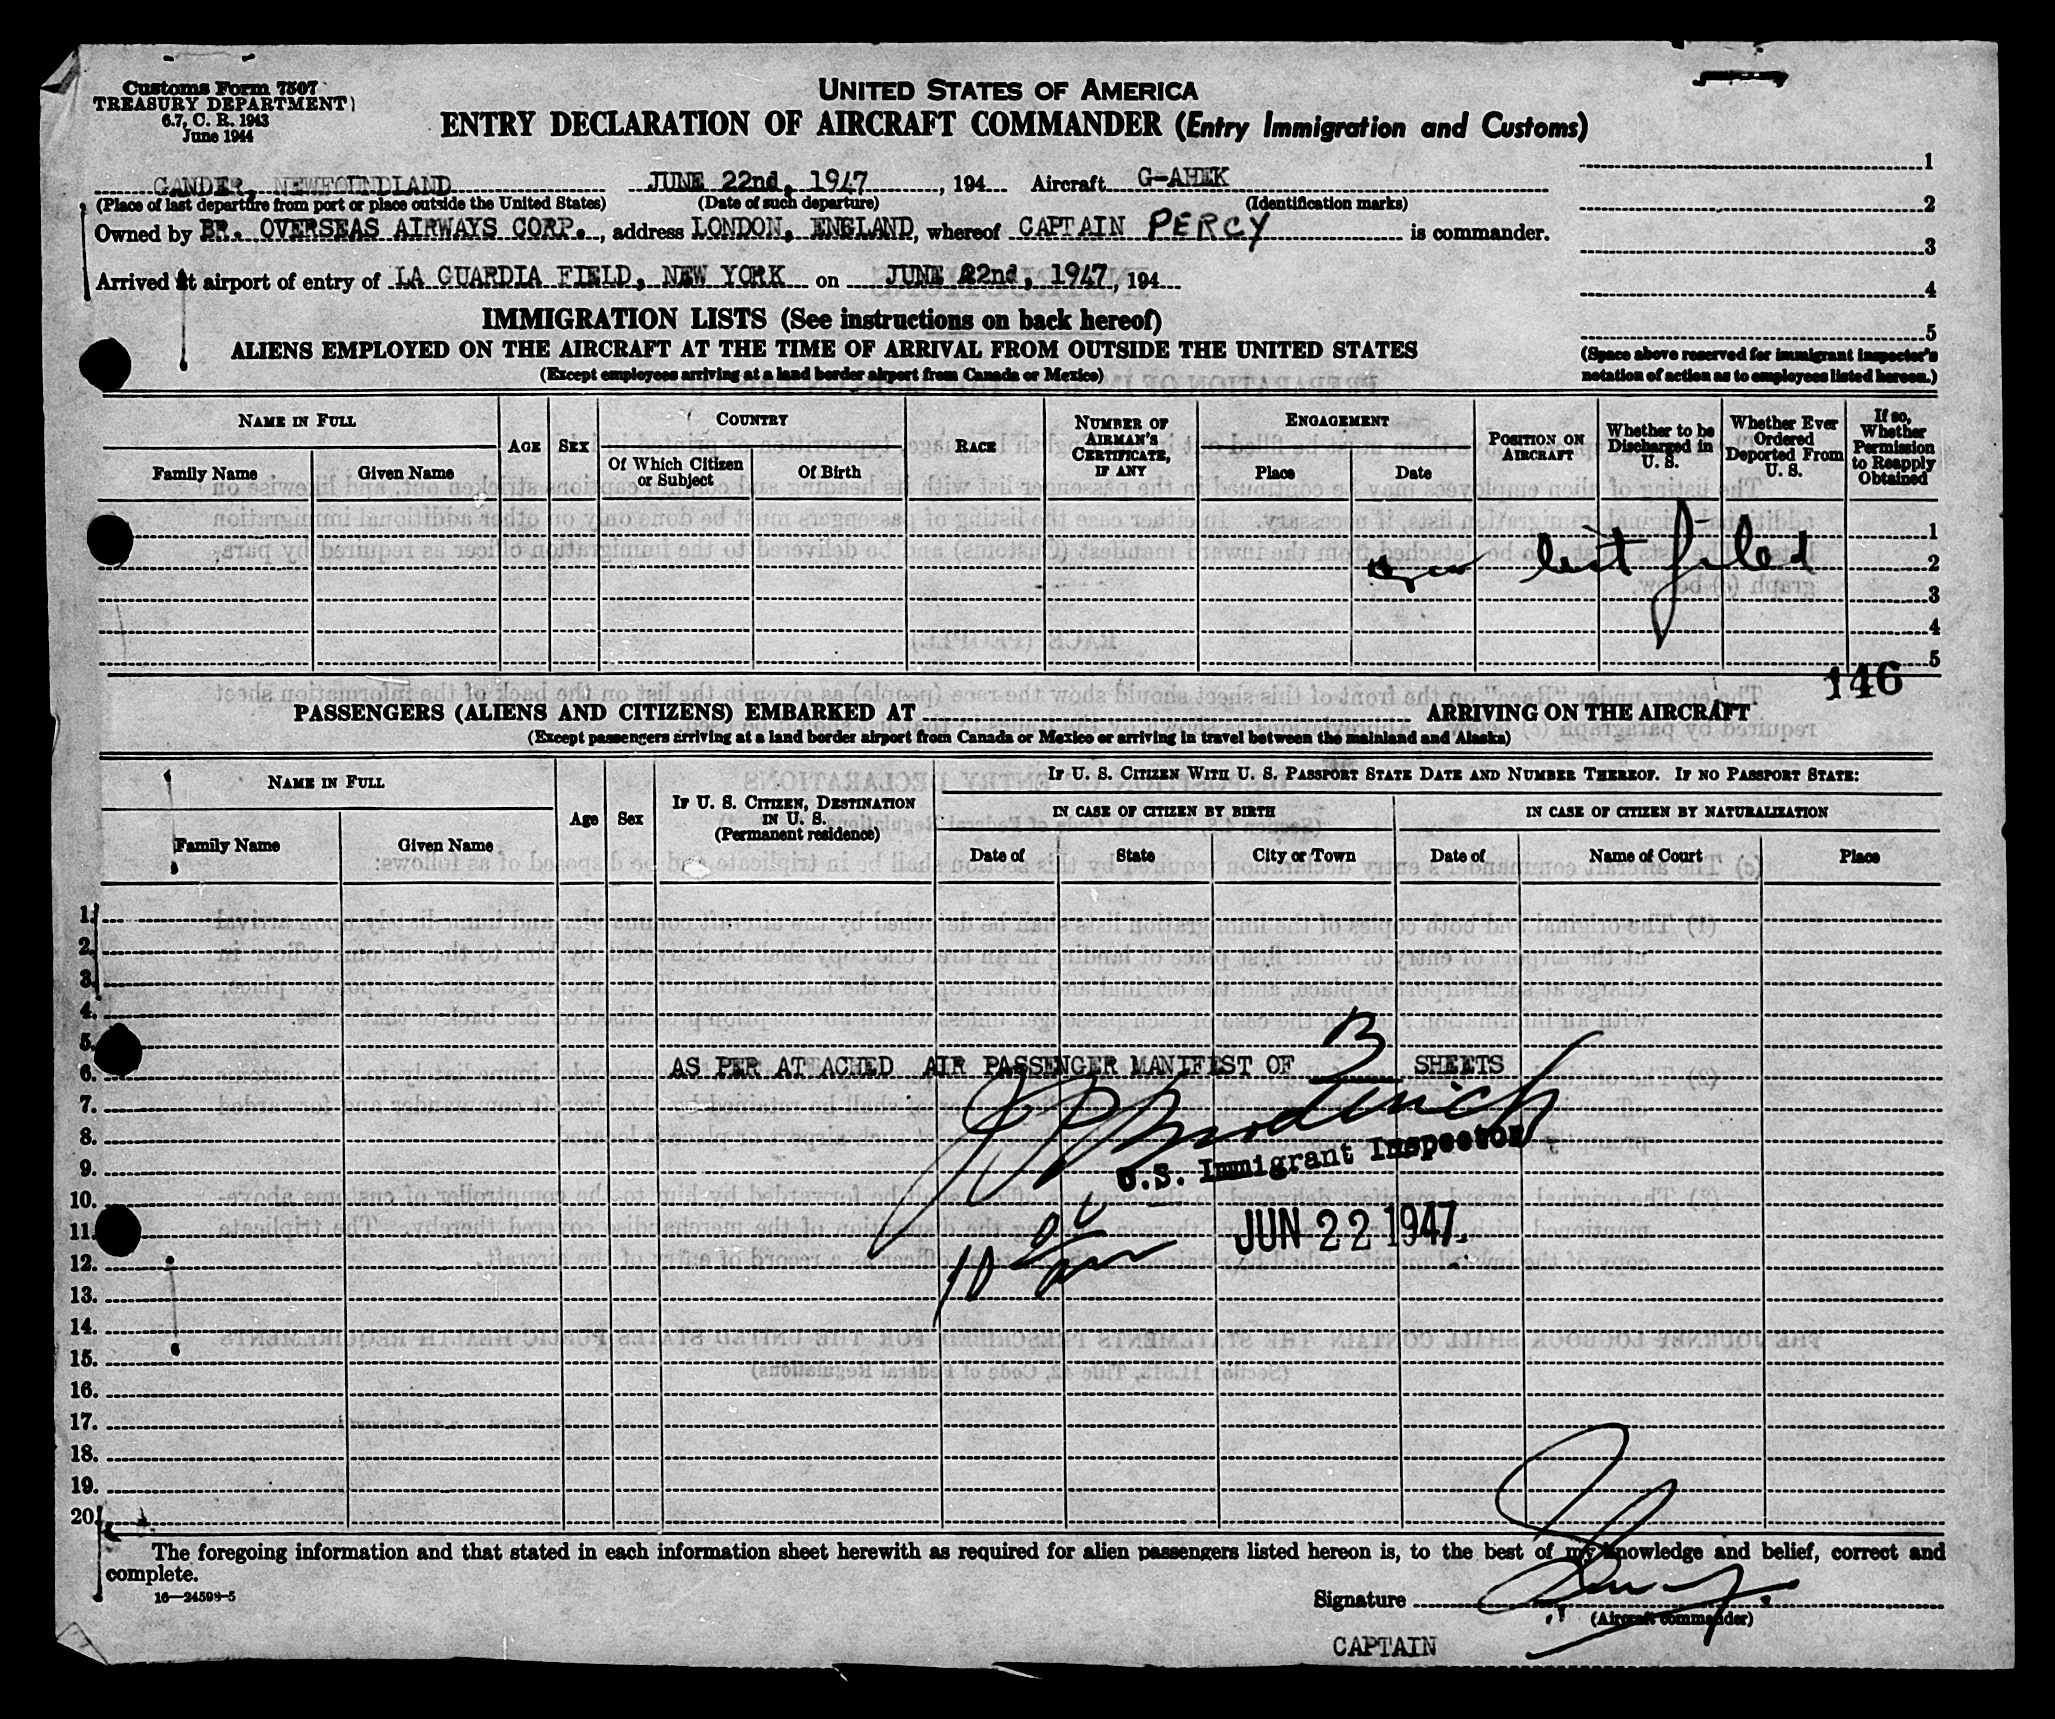 Customs Form 7507
TREASURY DEPARTMENT
6.7, C. R. 1943
June 1944
UNITED STATES OF AMERICA
ENTRY DECLARATION OF AIRCRAFT COMMANDER (Entry Immigration and Customs)
GANDER, NEWFOUNDLAND JUNE 22nd, 1947, 194 Aircraft G-AHEK
(Place of last departure from port or place outside the United States) (Date of such departure) (Identification marks)
Owned by BR. OVERSEAS AIRWAYS CORP., address LONDON, ENGLAND, whereof CAPTAIN PERCY is commander.
Arrived at airport of entry of LA GUARDIA FIELD, NEW YORK on JUNE 22nd, 1947, 194
1
2
3
4
5
(Space above reserved for immigrant inspector's
notation of action as to employees listed hereon.)
IMMIGRATION LISTS (See instructions on back hereof)
ALIENS EMPLOYED ON THE AIRCRAFT AT THE TIME OF ARRIVAL FROM OUTSIDE THE UNITED STATES
(Except employees arriving at a land border airport from Canada or Mexico)
NAME IN FULL
Family Name
Given Name
AGE
SEX
COUNTRY
Of Which Citizen
or Subject
Of Birth
RACE
NUMBER OF
AIRMAN'S
CERTIFICATE,
IF ANY
ENGAGEMENT
Place
Date
POSITION ON
AIRCRAFT
Whether to be
Discharged in
U. S.
Whether Ever
Ordered
Deported From
U. S.
If so,
Whether
Permission
to Reapply
Obtained
1
2
3
4
5
list filed
146
PASSENGERS (ALIENS AND CITIZENS) EMBARKED AT ARRIVING ON THE AIRCRAFT
(Except passengers arriving at a land border airport from Canada or Mexico or arriving in travel between the mainland and Alaska)
NAME IN FULL
Family Name
Given Name
Age
Sex
IF U. S. CITIZEN, DESTINATION
IN U. S.
(Permanent residence)
IF U. S. CITIZEN WITH U. S. PASSPORT STATE DATE AND NUMBER THEREOF. IF NO PASSPORT STATE:
IN CASE OF CITIZEN BY BIRTH
IN CASE OF CITIZEN BY NATURALIZATION
Date of
State
City or Town
Date of
Name of Court
Place
1.
2.
3.
4.
5.
6.
7.
8.
9.
10.
11.
12.
13.
14.
15.
16.
17.
18.
19.
20.
AS PER ATTACHED AIR PASSENGER MANIFEST OF 3 SHEETS
U.S. Immigrant Inspector
JUN 22 1947
The foregoing information and that stated in each information sheet herewith as required for alien passengers listed hereon is, to the best of my knowledge and belief, correct and
complete.
16—24598-5
Signature
(Aircraft commander)
CAPTAIN